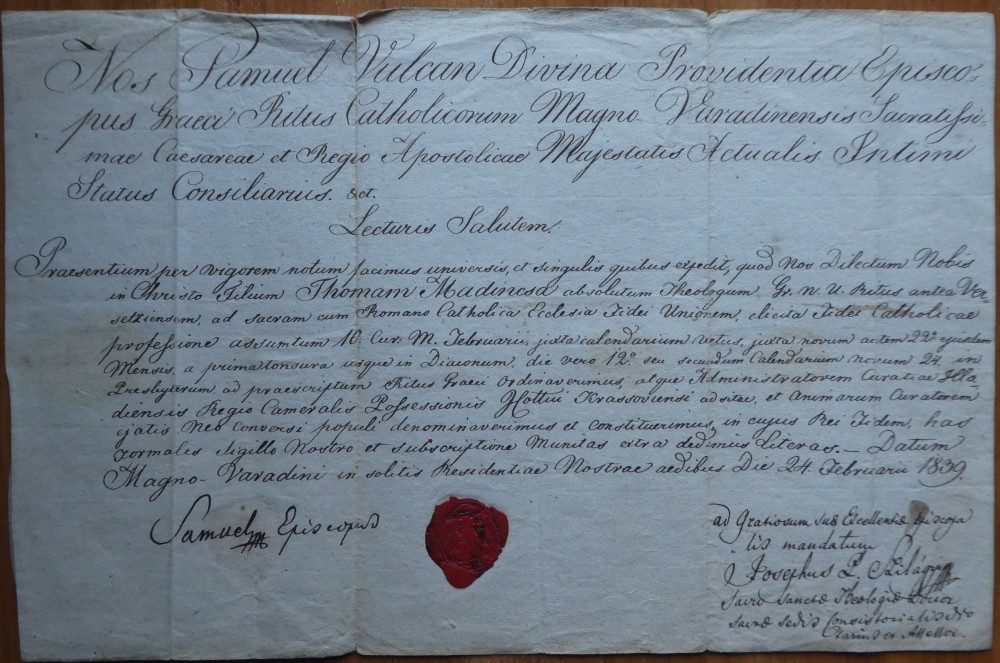 Nos Samuel Vulcan Divina Providentia Episco-
pus Graeci Ritus Catholicorum Magno Varadinensis Sacratissi-
mae Caesareae et Regio Apostolicae Majestatis Actualis Intimi
Status Consiliarius. &ct.
Lecturis Salutem.
Praesentium per vigorem notum facimus universis, et singulis quibus expedit, quod Nos Dilectum Nobis
in Christo Filium Thomam Madincsa absolutum Theologum Gr. N. U. Ritus antea Ver-
setziensem, ad sacram cum Romano Catholica Ecclesia Fidei Unionem, elicita Fidei Catholicae
professione assumtum 10. Cur. M. Februarii, juxta calendarium vetus, juxta novum autem 22º ejusdem
Mensis, a prima tonsura usque in Diaconum, die vero 12º seu secundum Calendarium novum 24. in
Presbyterum ad praescriptum Ritus Graeci Ordinaverimus, atque Administratorem Curatiae Illa-
diensis Regio Cameralis Possessionis Cottui Krassoviensi adsitae, et Animarum Curatorem
ejatis Neo Conversi populi denominaverimus et constituerimus, in cujus Rei Fidem, has
formales Sigillo Nostro et subscriptione Munitas extra dedimus Literas. — Datum
Magno-Varadini in solitis Residentiae Nostrae aedibus Die 24 Februarii 1839.
Samuel Episcopus
ad Gratiosum suae Excellentiae Episcopa
lis mandatum
Josephus P. Szilágyi
Sacrae Sanctae Theologiae Doctor
Sacrae Sedis Consistorialis
et Assessor